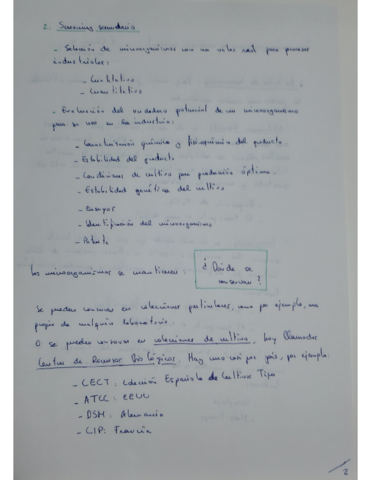 2. Screening secundario
- Selección de microorganismos con un valor real para procesos
industriales:
- Cualitativo
- Cuantitativo
- Evaluación del verdadero potencial de un microorganismo
para su uso en la industria:
- Características químicas y fisicoquímicas del producto
- Estabilidad del producto
- Condiciones de cultivo para producción óptima
- Estabilidad genética del cultivo
- Ensayos
- Identificación del microorganismo
- Patente
Los microorganismos se mantienen:
¿Dónde se
conservan?
Se pueden conservar en colecciones particulares, como por ejemplo, una
propia de cualquier laboratorio.
O se pueden conservar en colecciones de cultivo, hoy llamadas
Centros de Recursos Biológicos. Hay una casi por país, por ejemplo:
- CECT: Colección Española de Cultivos Tipo
- ATCC: EEUU
- DSM: Alemania
- CIP: Francia
2